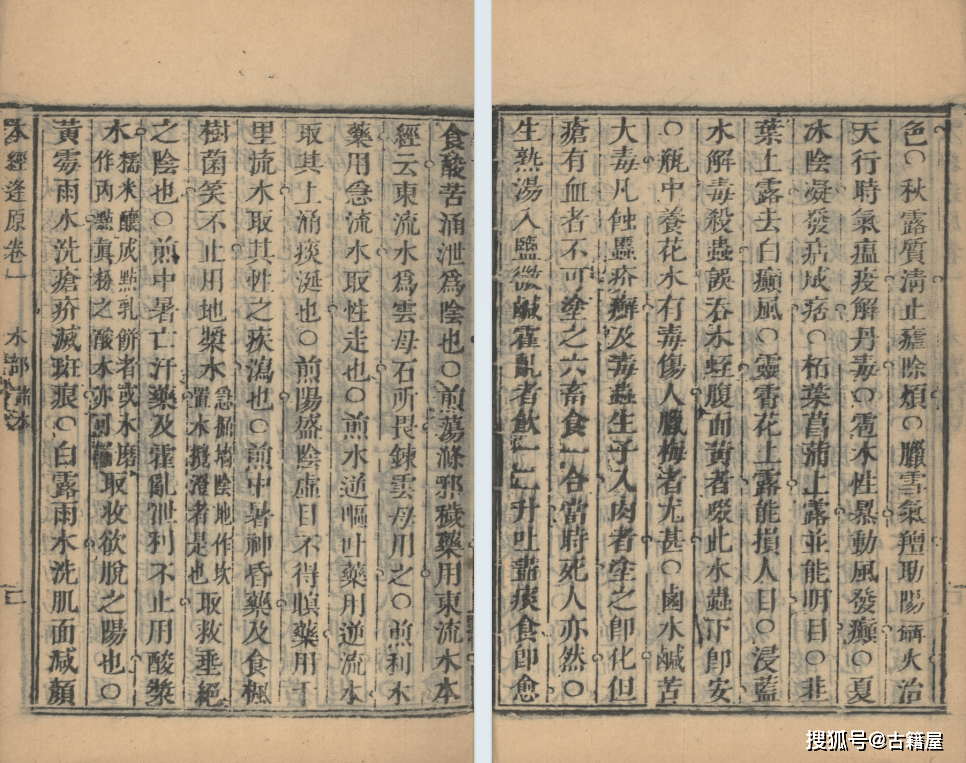 色○秋露質清止瘧除煩○臘雪氣羶助陽辟火治
天行時氣瘟疫解丹毒○雹水性暴動風發癲○夏
冰陰凝發痁成痞○柏葉菖蒲上露並能明目○韭
葉上露去白癜風○靈香花上露能損人目○浸藍
水解毒殺蟲誤吞水蛭腹而黃者啜此水蟲下卽安
○瓶中養花水有毒傷人臘梅者尤甚○鹵水鹹苦
大毒凡蝕䘌疥癬及毒蟲生子入肉者塗之卽化但
瘡有血者不可塗之六畜食一合當時死人亦然○
生熟湯入鹽微鹹霍亂者飲一二升吐盡痰食卽愈
食酸苦涌泄爲陰也○煎蕩滌邪穢藥用東流水本
經云東流水爲雲母石所畏鍊雲母用之○煎利水
藥用急流水取性走也○煎水逆嘔吐藥用逆流水
取其上涌痰涎也○煎陽盛陰虛目不得瞑藥用千
里流水取其性之疾瀉也○煎中暑神昏藥及食楓
樹菌笑不止用地漿水
急掘墻陰地作坎
置水攪澄者是也
取救垂絕
之陰也○煎中暑亡汗藥及霍亂泄利不止用酸漿
水
糯米釀成點乳餅者或水磨
作內點眞粉之酸水亦可
取收欲脫之陽也○
黃霉雨水洗瘡疥滅斑痕○白露雨水洗肌面減顏
本經逢原卷一 水部 諸水
搜狐号@古籍屋